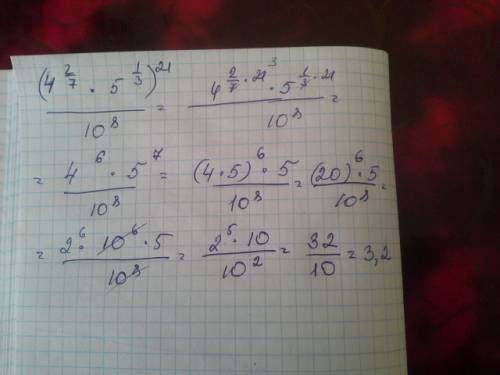 (4^{2/7} · 5^{1/3})^{21} / 10^8 = 4^{2/7 · 21^3} · 5^{1/3 · 21} / 10^8 =
= 4^6 · 5^7 / 10^8 = (4 · 5)^6 · 5 / 10^8 = (20)^6 · 5 / 10^8 =
= 2^6 · 10^6 · 5 / 10^8 = 2^5 · 10 / 10^2 = 32 / 10 = 3,2